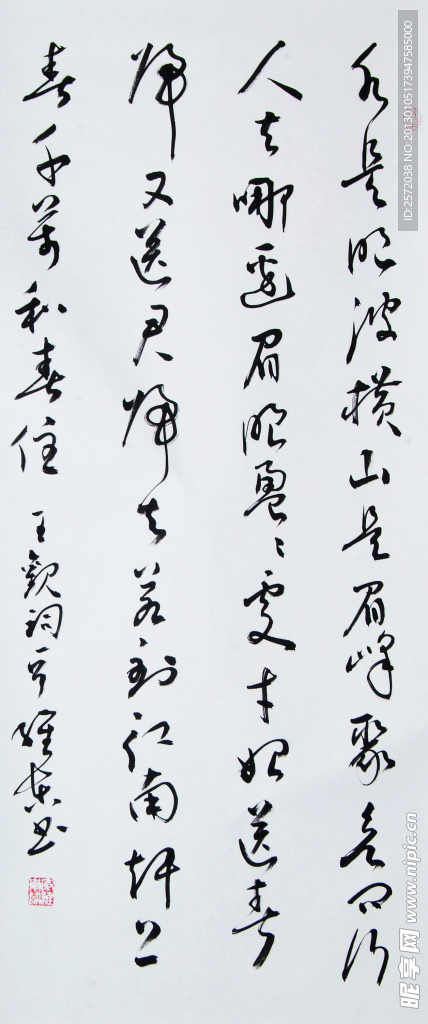 水是眼波横山是眉峰聚欲问行
人去哪边眉眼盈盈处才始送春
归又送君归去若到江南赶上
春千万和春住 王观词一首
昵享网 www.nipic.cn
ID:2572038 NO:20130105173947585000